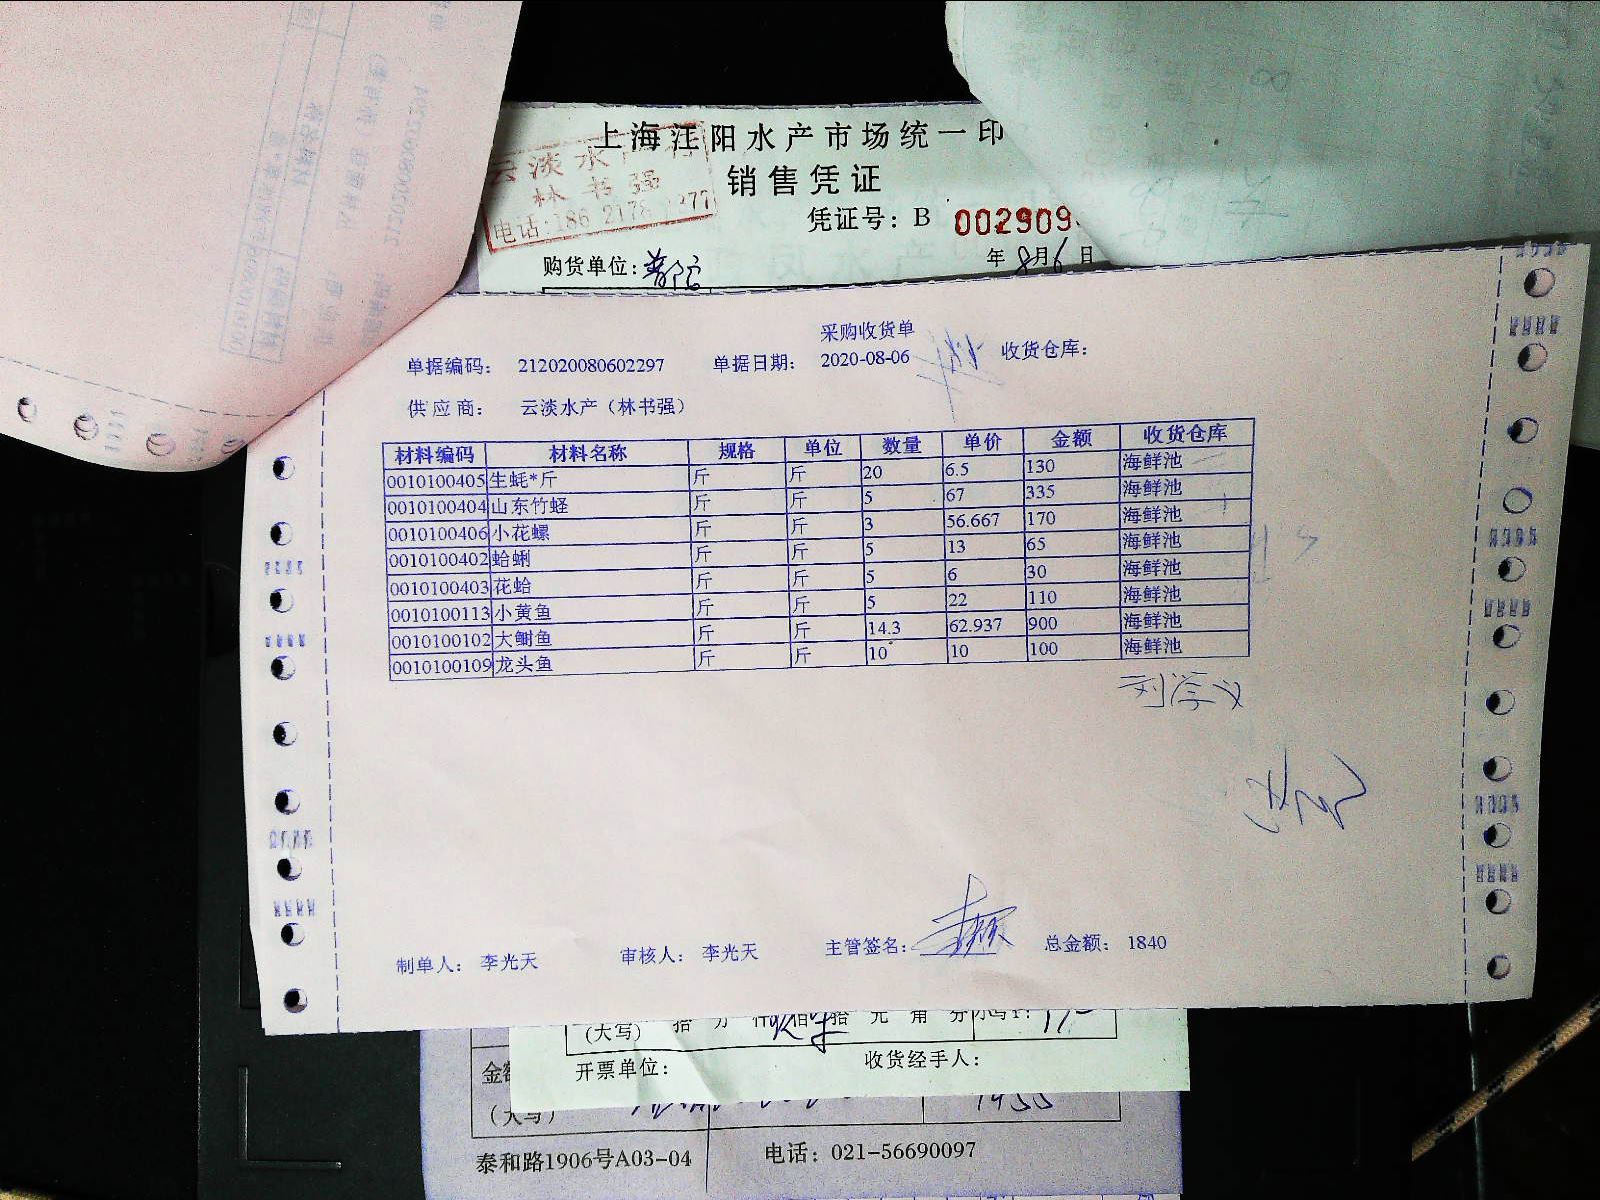 上海江阳水产市场统一印
销售凭证
云淡水
林书强
电话:186 2178
凭证号: B 002909
购货单位: 普陀
年 8月6日
采购收货单
单据编码: 212020080602297 单据日期: 2020-08-06 收货仓库:
供应商: 云淡水产（林书强）
材料编码 材料名称 规格 单位 数量 单价 金额 收货仓库
0010100405 生蚝*斤 斤 斤 20 6.5 130 海鲜池
0010100404 山东竹蛏 斤 斤 5 67 335 海鲜池
0010100406 小花螺 斤 斤 3 56.667 170 海鲜池
0010100402 蛤蜊 斤 斤 5 13 65 海鲜池
0010100403 花蛤 斤 斤 5 6 30 海鲜池
0010100113 小黄鱼 斤 斤 5 22 110 海鲜池
0010100102 大鲥鱼 斤 斤 14.3 62.937 900 海鲜池
0010100109 龙头鱼 斤 斤 10 10 100 海鲜池
刘学义
制单人: 李光天 审核人: 李光天 主管签名: 总金额: 1840
(大写) 拾 万 仟 佰 拾 元 角 分
开票单位: 收货经手人:
(大写) 1455
泰和路1906号A03-04 电话: 021-56690097